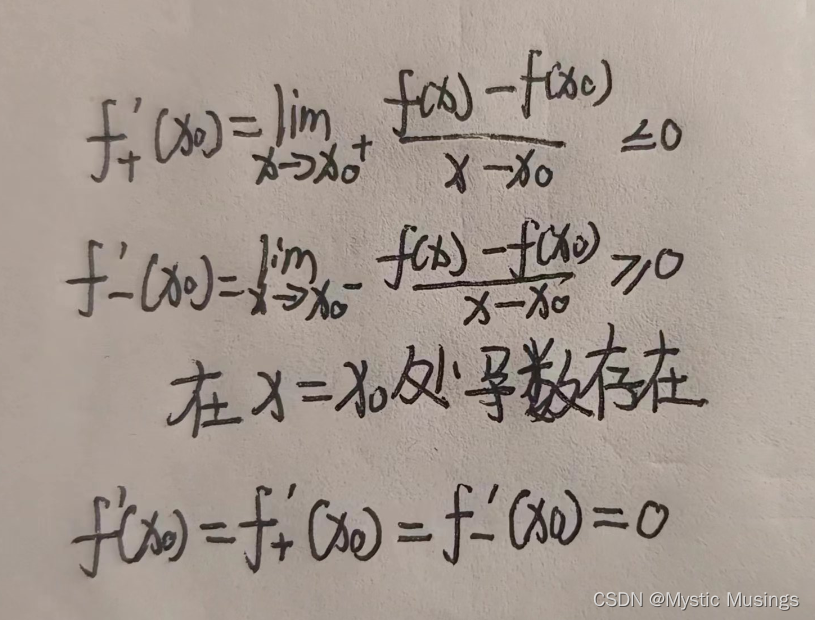 f₊′(x₀) = lim_{x→x₀⁺} (f(x) − f(x₀)) / (x − x₀) ≤ 0
f₋′(x₀) = lim_{x→x₀⁻} (f(x) − f(x₀)) / (x − x₀) ≥ 0
在 x = x₀ 处导数存在
f′(x₀) = f₊′(x₀) = f₋′(x₀) = 0
CSDN @Mystic Musings